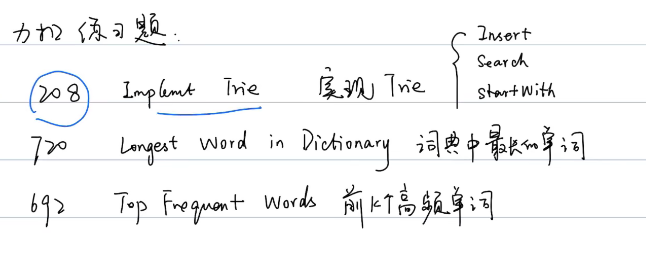 力扣 练习题:
208 Implemt Trie 实现 Trie { Insert
Search
startWith
720 Longest Word in Dictionary 词典中最长的单词
692 Top Frequent Words 前K个高频单词